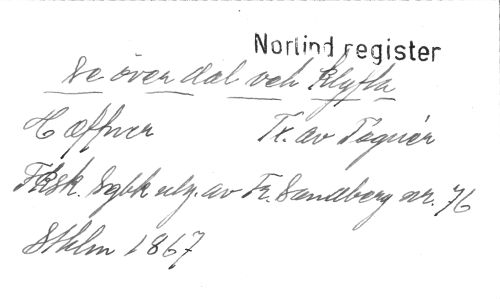 Norlind register
Se över dal och klyfta
Hæffner Tx. av Tegnér
Fksk. Sgbk utg. av Fr. Sandberg nr. 76
Sthlm 1867